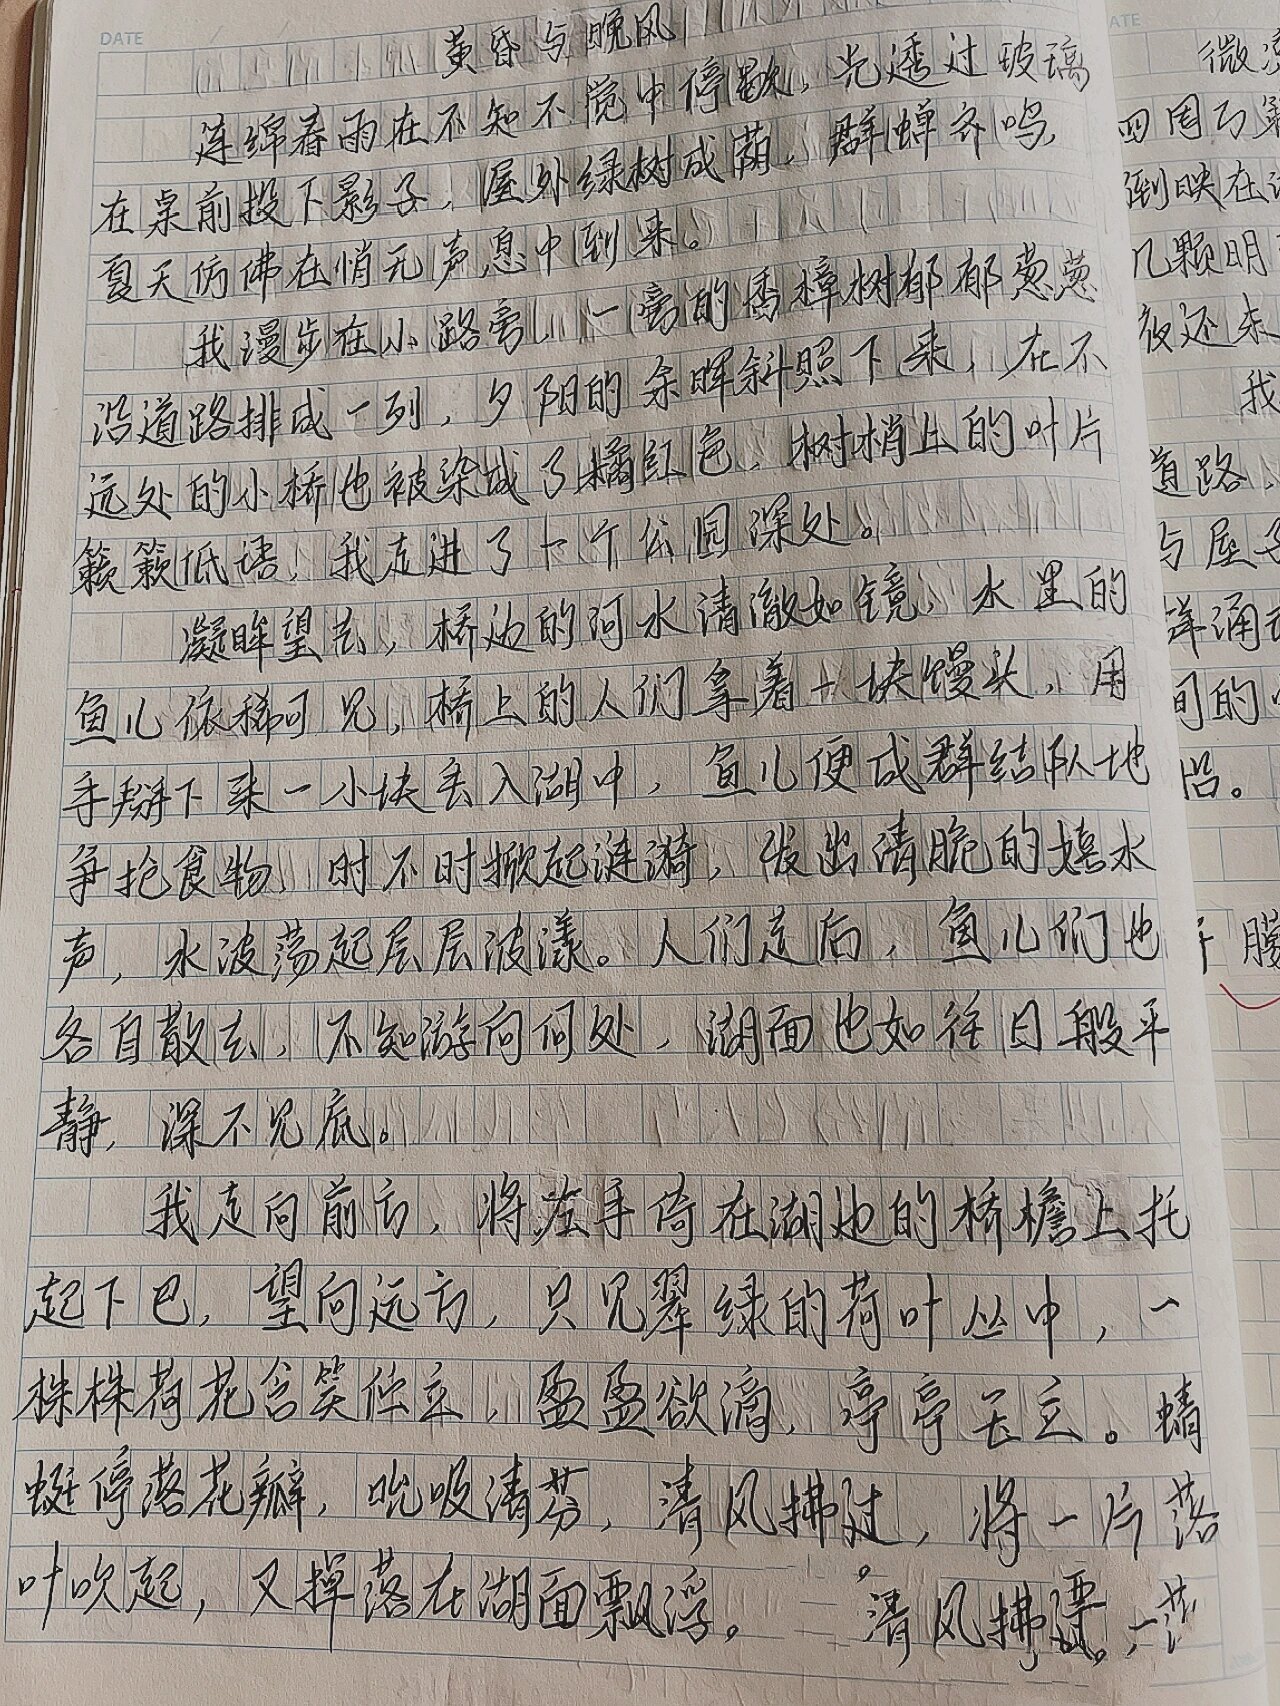 DATE
黄昏与晚风
连绵春雨在不知不觉中停歇，光透过玻璃
在桌前投下影子，屋外绿树成荫，群蝉齐鸣，
夏天仿佛在悄无声息中到来。
我漫步在小路旁，一旁的香樟树郁郁葱葱
沿道路排成一列，夕阳的余晖斜照下来，在不
远处的小桥也被染成了橘红色，树梢上的叶片
簌簌低语，我走进了一个公园深处。
凝眸望去，桥边的河水清澈如镜，水里的
鱼儿依稀可见，桥上的人们拿着一块馒头，用
手掰下来一小块丢入湖中，鱼儿便成群结队地
争抢食物，时不时掀起涟漪，发出清脆的嬉水
声，水波荡起层层波漾。人们走后，鱼儿们也
各自散去，不知游向何处，湖面也如往日般平
静，深不见底。
我走向前方，将左手倚在湖边的桥檐上托
起下巴，望向远方，只见翠绿的荷叶丛中，一
株株荷花含笑伫立，盈盈欲滴，亭亭玉立。蜻
蜓停落花瓣，吮吸清芬，清风拂过，将一片落
叶吹起，又掉落在湖面飘浮。 清风拂
DATE
微
四周
倒映在
几颗明
夜还未
我
道路，
与屋子
样涌
间的
。
朦